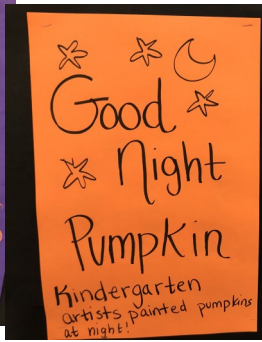 Good
Night
Pumpkin
Kindergarten
artists painted pumpkins
at night!